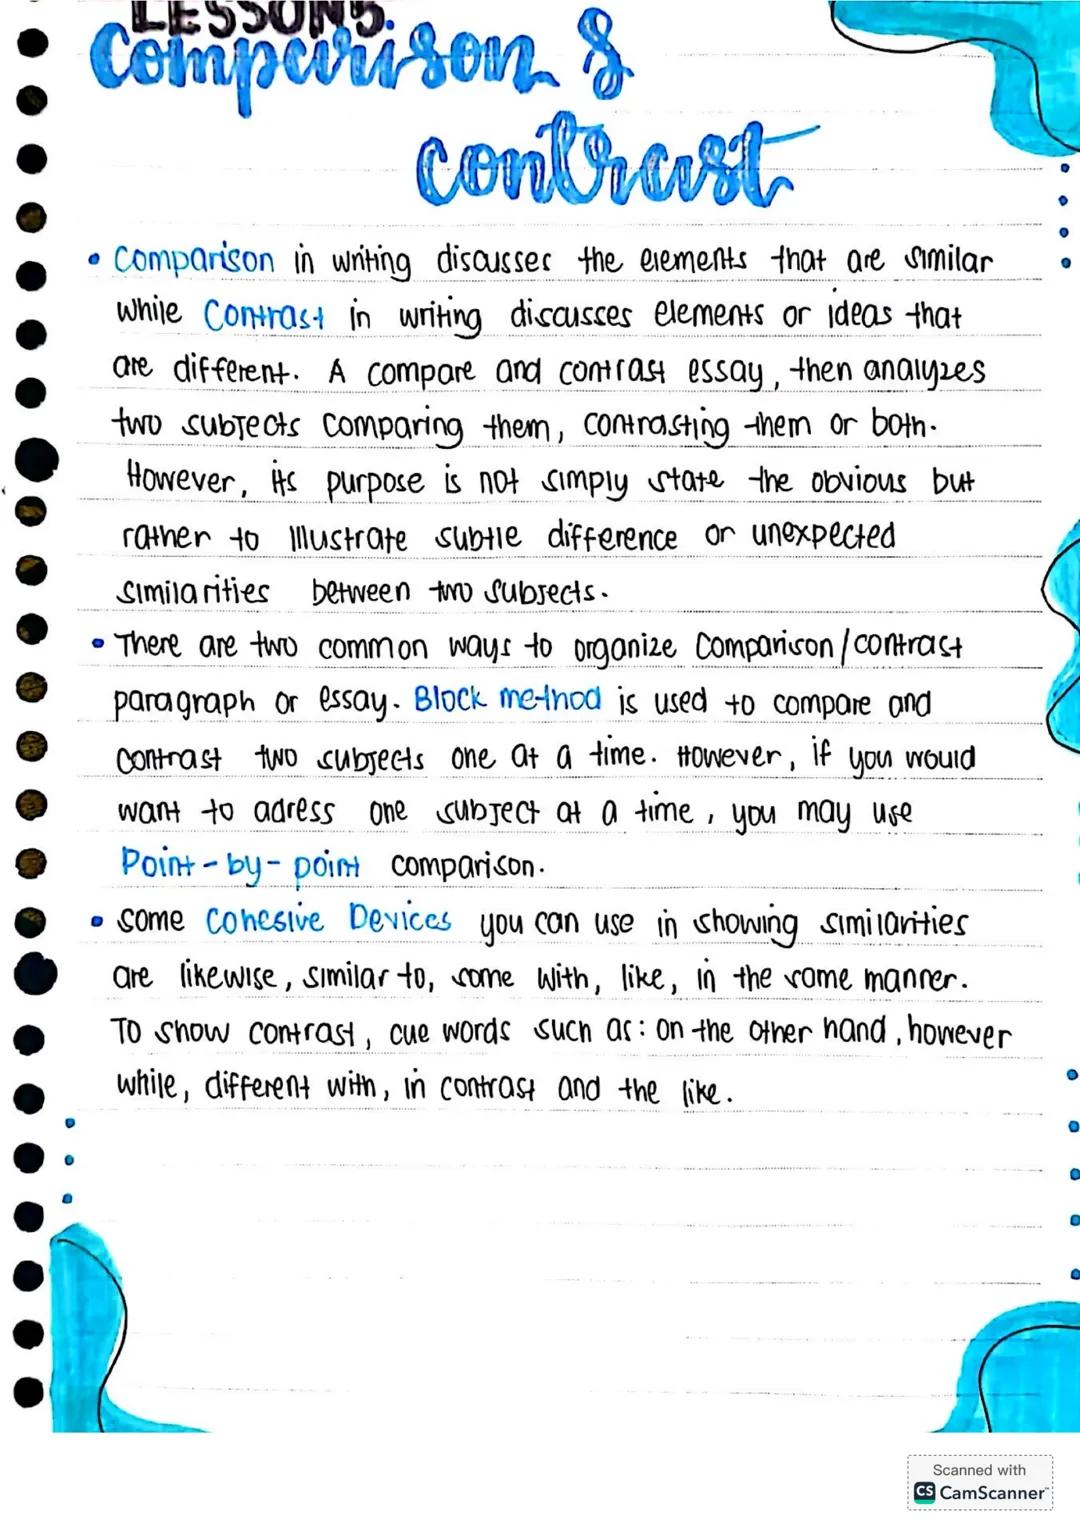 LESSON 5:
Comparison &
contrast
• Comparison in writing discusses the elements that are similar
while Contrast in writing discusses elements or ideas that
are different. A compare and contrast essay, then analyzes
two subjects comparing them, contrasting them or both.
However, its purpose is not simply state the obvious but
rather to illustrate subtle difference or unexpected
similarities between two subjects.
• There are two common ways to organize Comparison/contrast
paragraph or essay. Block method is used to compare and
contrast two subjects one at a time. However, if you would
want to adress one subject at a time, you may use
Point-by-point comparison.
• some Cohesive Devices you can use in showing similarities
are likewise, similar to, same with, like, in the same manner.
To show contrast, cue words such as: on the other hand, however
while, different with, in contrast and the like.
Scanned with
CS CamScanner